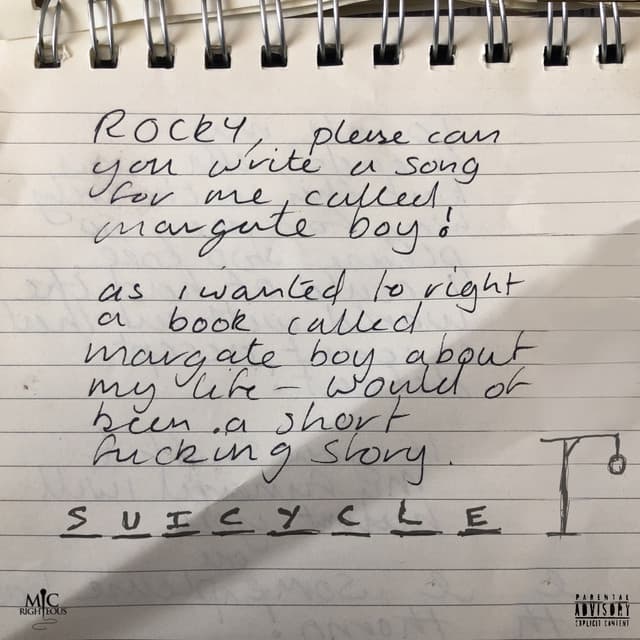 ROCKY, please can
you write a song
for me, called,
margate boy!
as i wanted to right
a book called
margate boy about
my life - would of
been a short
fucking story.
S U I C Y C L E
MIC
RIGHTEOUS
PARENTAL
ADVISORY
EXPLICIT CONTENT